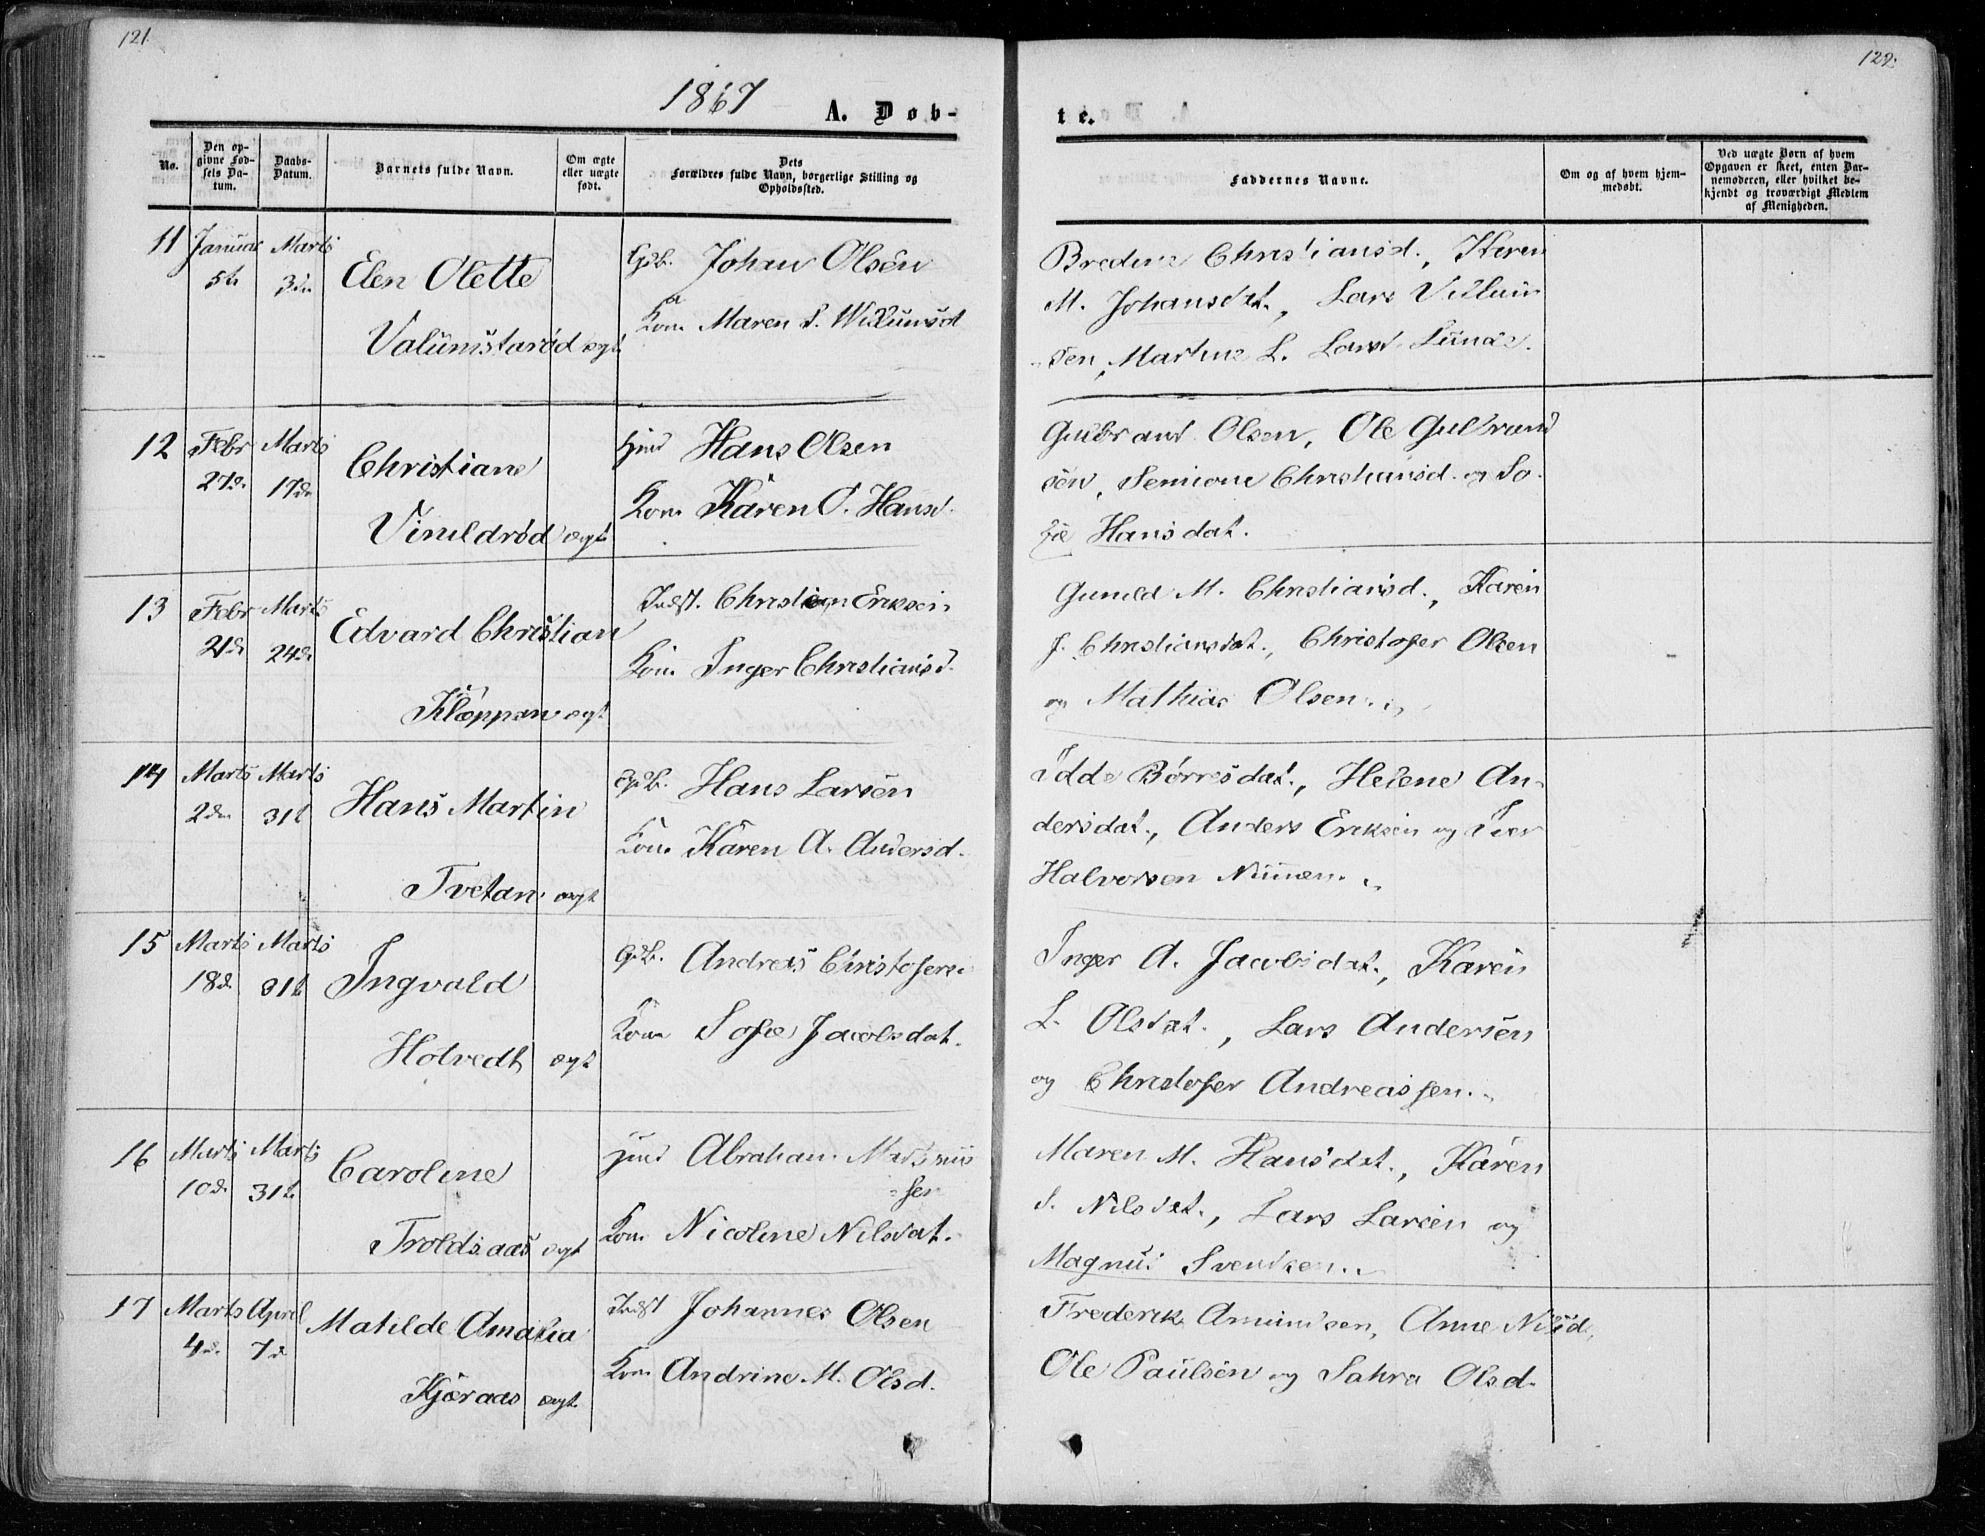 121.
1867
A. Døb-
No.
Den op-
givne Fød-
sels Da-
tum.
Daabs-
Datum.
Barnets fulde Navn.
Om ægte
eller uægte
født.
Dets
Forældres fulde Navn, borgerlige Stilling og
Opholdssted.
11 Januar Marts Elen Olette Gdb. Johan Olsen
5te 3die
Kone Maren S. Willumsd
Valumstarød ægt
12 Febr Marts Christiane Hans Olsen
27de 17de
Kone Karen O. Hansd.
Virildrød ægt
13 Febr Marts Edvard Christian Indst. Christian Eriksen
21de 24de
Kone Inger Christiansd.
Kloppan ægt
14 Marts Marts Hans Martin Gdb. Hans Larsen
2den 31t
Kone Karen A. Andersd.
Tvetan ægt
15 Marts Marts Ingvald Gdb. Andreas Christofersen
18d. 31t
Kone Sofie Jacobsdat.
Holvedt ægt
16 Marts Marts Caroline Abraham
10d. 31t.
Kone Nicoline Nilsdat.
Troldsaas ægt
17 Marts April Matilde Amalia Indst Johannes Olsen
4d. 7d
Kone Andrine M. Olsd.
Kjæraas ægt.
122.
te.
Faddernes Navne.
Om og af hvem hjem-
medøbt.
Ved uægte Børn af hvem
Opgaven er skeet, enten Bar-
nemoderen, eller hvilket be-
kjendt og troværdigt Medlem
af Menigheden.
Bredine Christiansd., Karen
M. Johansdat., Lars Villum
sen, Martine L. Larsd. Lunde.
Gulbrand Olsen, Ole Gulbrand
sen, Semione Christiansd. og So-
fie Hansdat.
Gunild M. Christiansd., Karen
J. Christiansdat., Christofer Olsen
og Mathias Olsen.
Idde Børresdat., Helene An-
dersdat., Anders Eriksen og Iver
Halvorsen
Inger A. Jacobsdat., Karen
L. Olsdat., Lars Andersen
og Christofer Andreassen.
Maren M. Hansdat., Karen
S. Nilsdat., Lars Larsen og
Magnus Svendsen.
Frederik Amundsen, Anne Nilsd,
Ole Paulsen og Sahra Olsd.